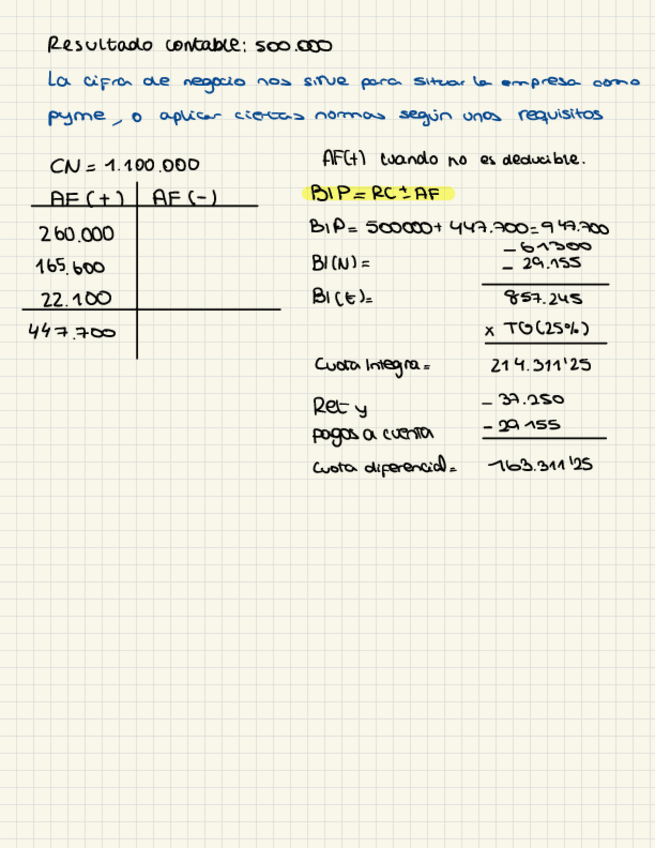 Resultado contable: 500.000
La cifra de negocio nos sirve para situar la empresa como
pyme, o aplicar ciertas normas según unos requisitos
CN = 1.100.000
AF (+) AF (-)
260.000
165.600
22.100
447.700
AF(+) cuando no es deducible.
BIP = RC ± AF
BIP = 500000 + 447.700 = 947.700
- 61300
BI(N) = - 29.155
BI(t) = 857.245
x TG (25%)
Cuota Integra = 214.311'25
Ret y - 37.250
pagos a cuenta - 29 155
Cuota diferencial = 163.311'25